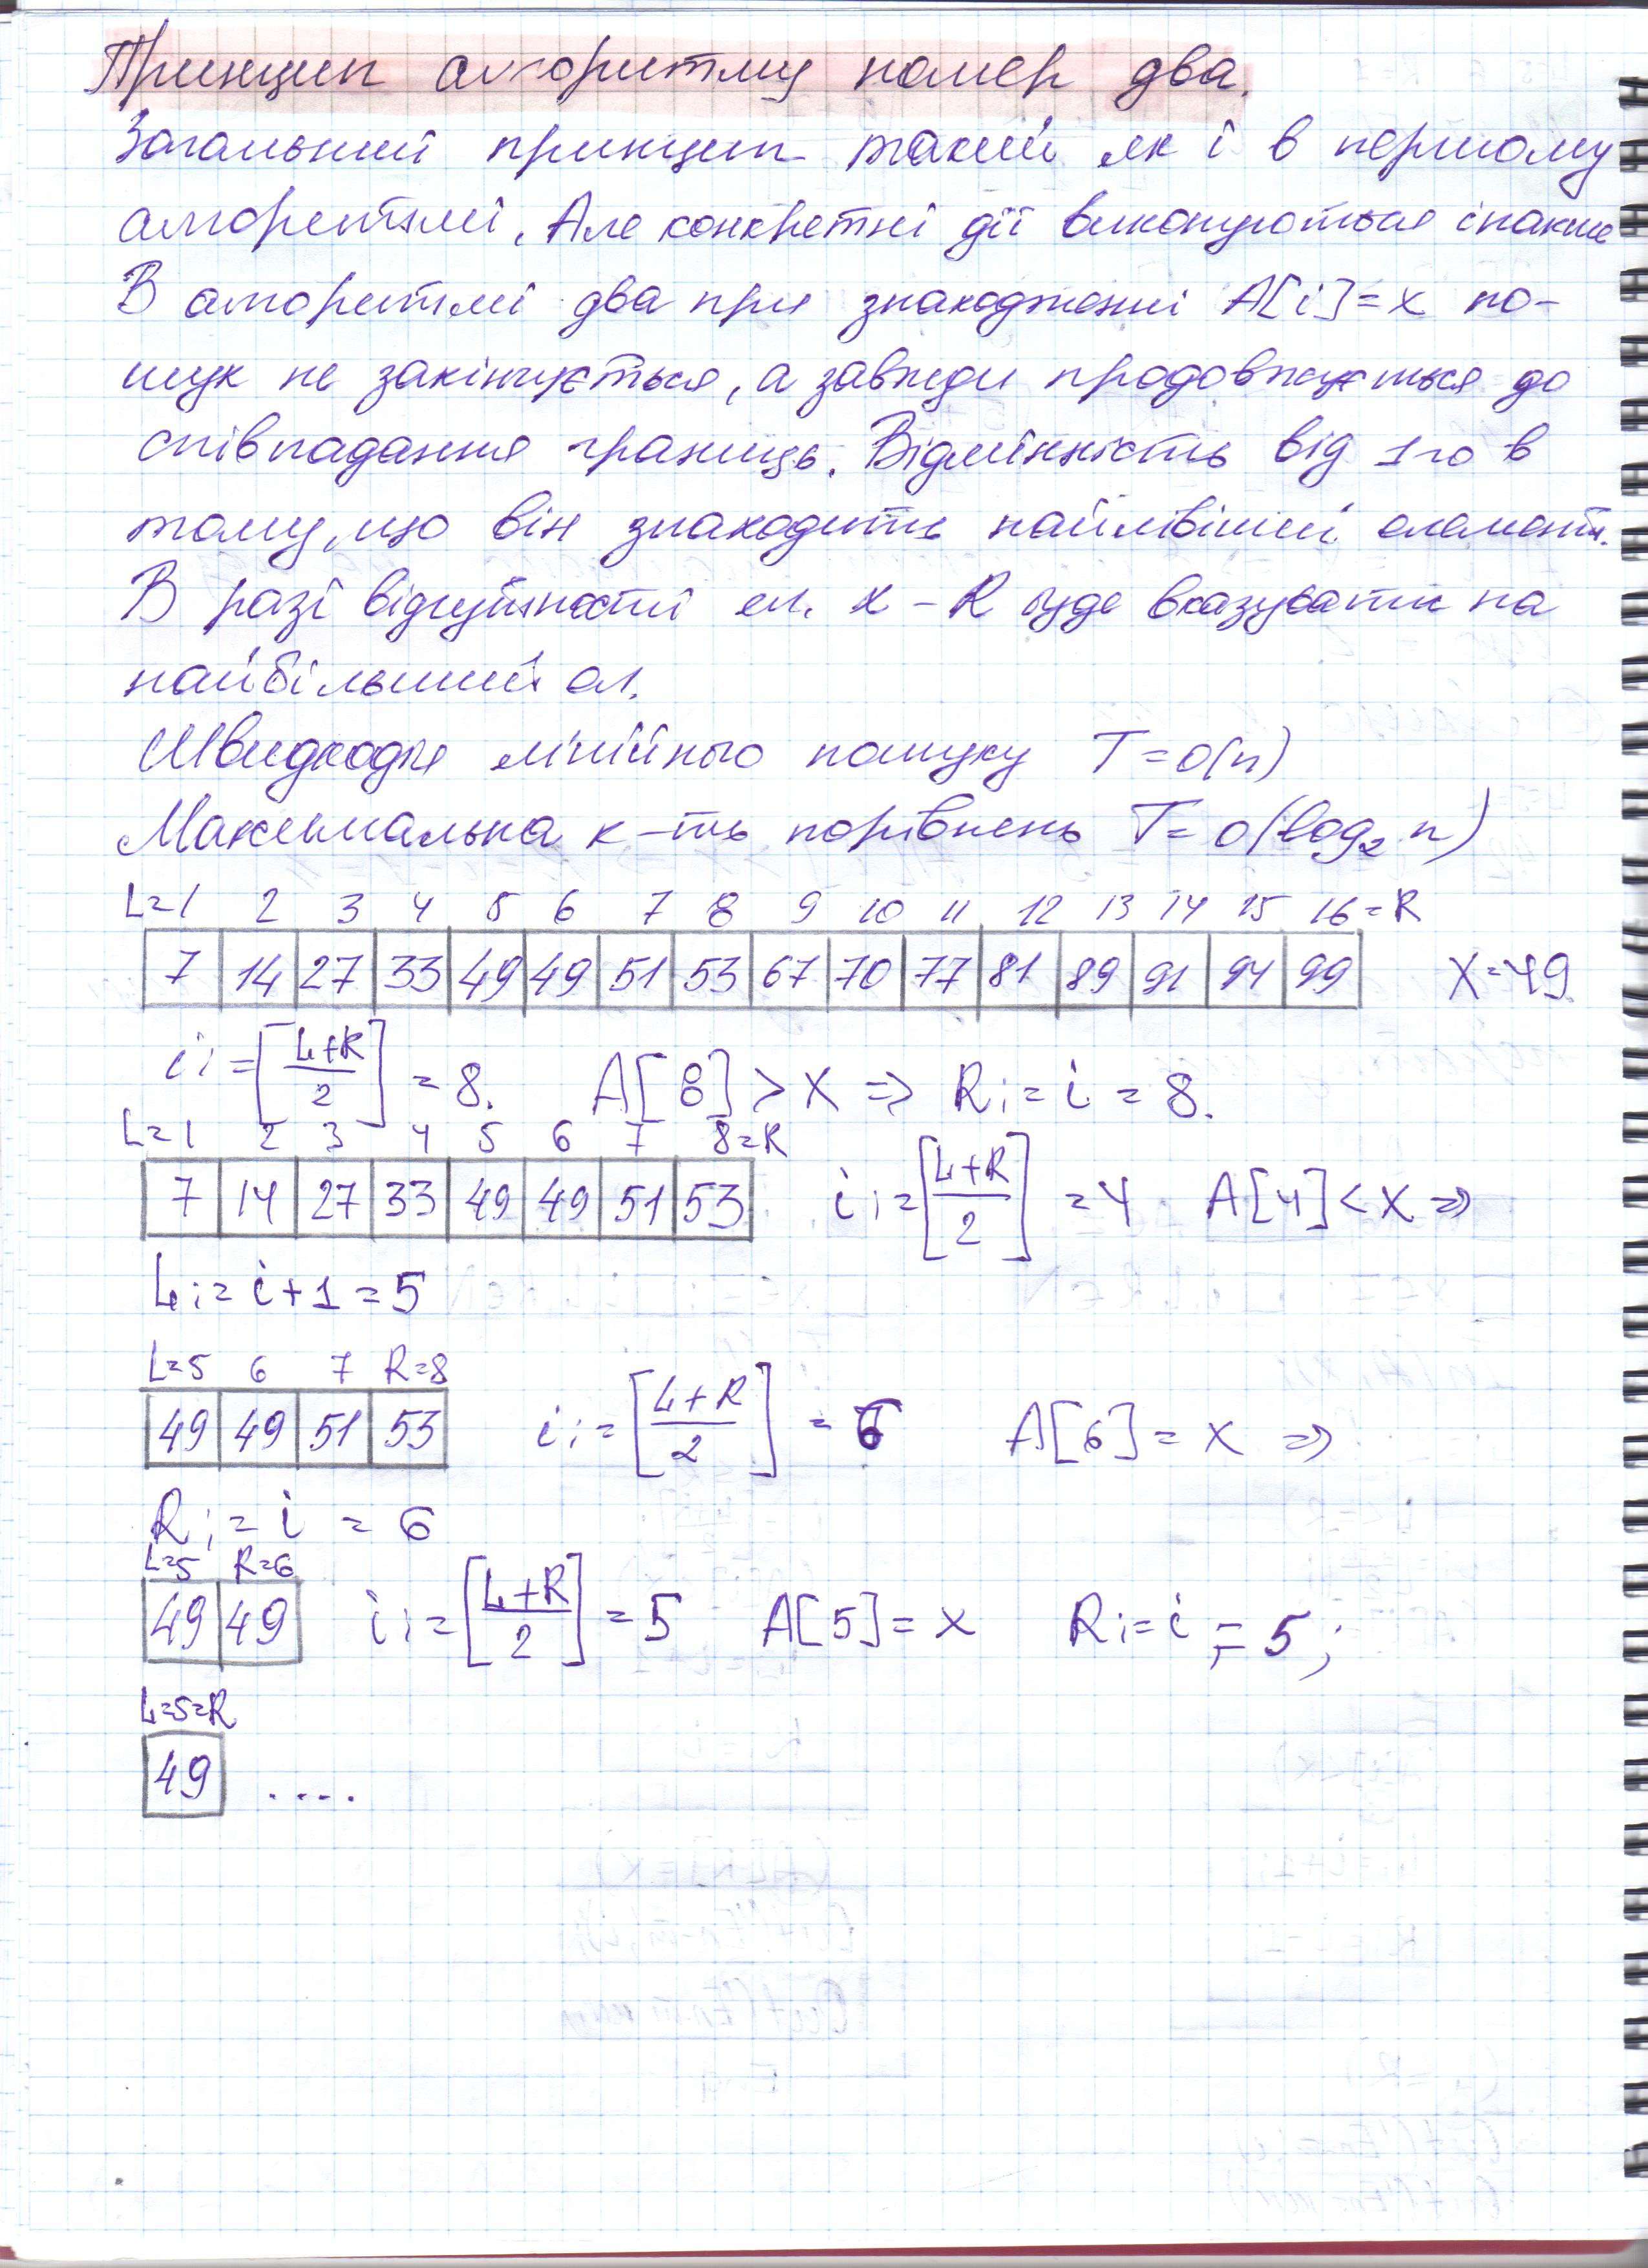 Принцип алгоритму номер два.
Загальний принцип такий як і в першому
алгоритмі. Але конкретні дії виконуються інакше
В алгоритмі два при знаходженні A[i]=x по-
шук не закінчується, а завжди продовжується до
співпадання границь. Відмінність від 1го в
тому, що він знаходить найлівіший елемент.
В разі відсутності ел. x – R буде вказувати на
найбільший ел.
Швидкодія лінійного пошуку T=O(n)
Максимальна к-ть порівнень T=O(log₂ n)
L=1 2 3 4 5 6 7 8 9 10 11 12 13 14 15 16=R
7 14 27 33 49 49 51 53 67 70 77 81 89 91 94 99 X=49
i:=[(L+R)/2]=8. A[8]>X ⇒ R:=i=8.
L=1 2 3 4 5 6 7 8=R
7 14 27 33 49 49 51 53 i:=[(L+R)/2]=4 A[4]<X ⇒
L:=i+1=5
L=5 6 7 R=8
49 49 51 53 i:=[(L+R)/2]=6 A[6]=X ⇒
R:=i=6
L=5 R=6
49 49 i:=[(L+R)/2]=5 A[5]=X R:=i=5;
L=5=R
49 ....